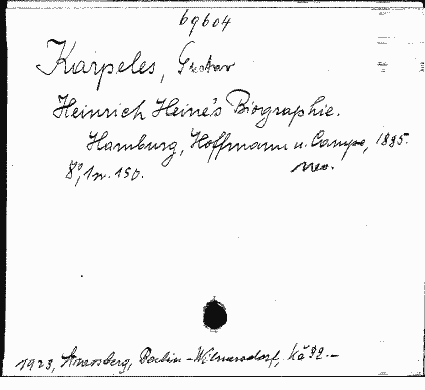 69604
Karpeles, Gustav
Heinrich Heine's Biographie.
Hamburg, Hoffmann u. Campe, 1885.
8°, 1 M. 150.
1923, Berlin-Wilmersdorf, Kč 92.-